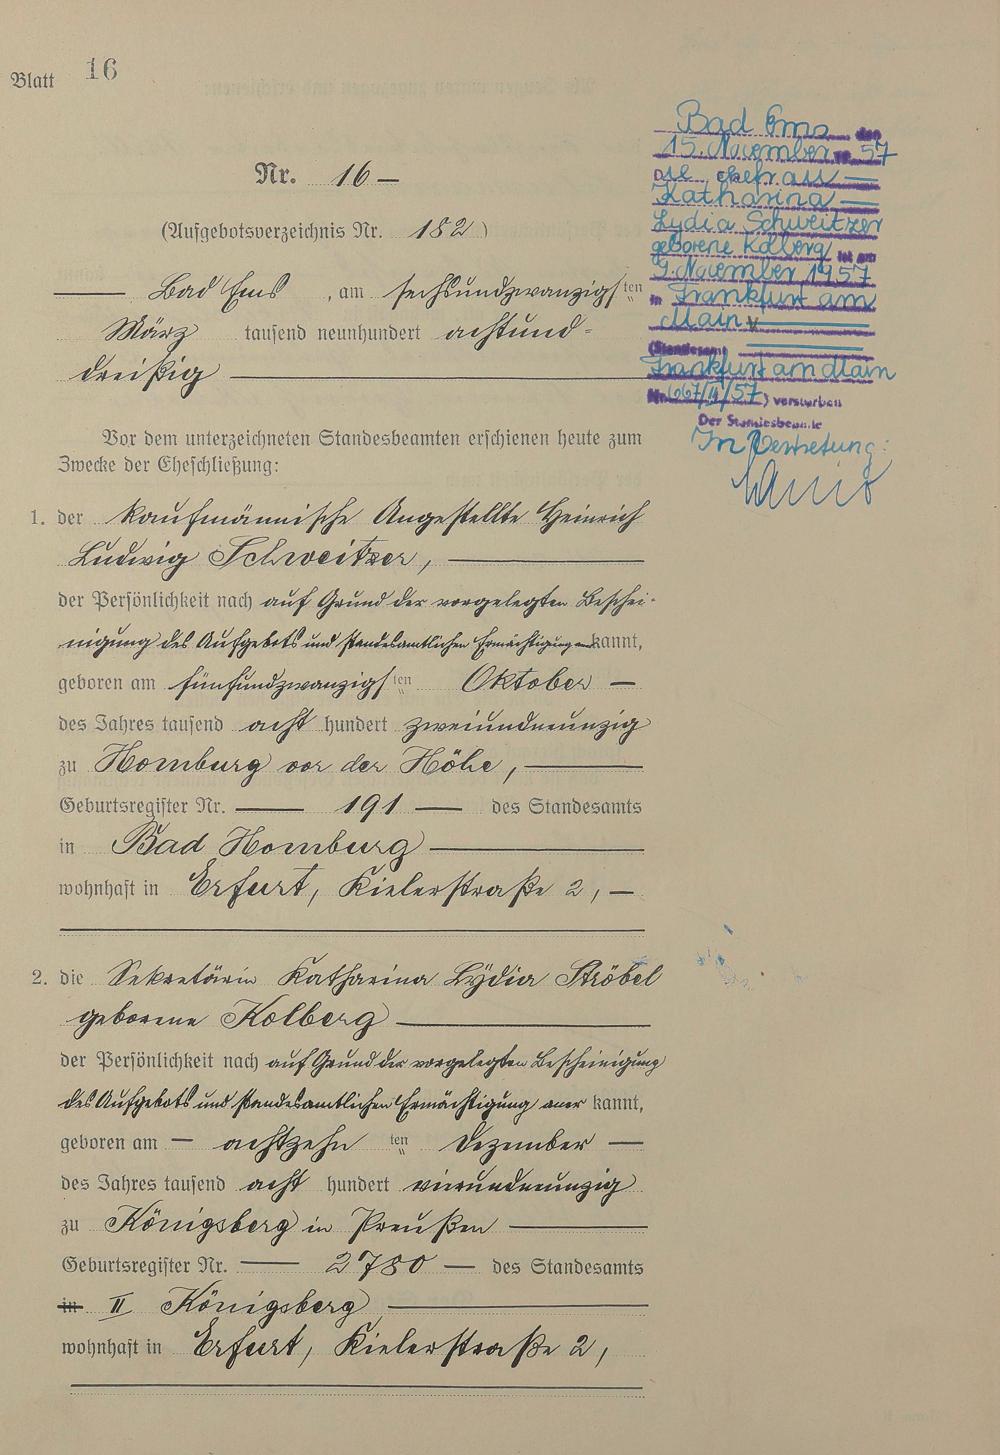 Blatt 16
Nr. 16 —
(Aufgebotsverzeichnis Nr. 182)
Bad Ems, am sechsundzwanzigsten
März tausend neunhundert achtund-
dreißig
Vor dem unterzeichneten Standesbeamten erschienen heute zum
Zwecke der Eheschließung:
1. der kaufmännische Angestellte Heinrich
Ludwig Schweitzer,
der Persönlichkeit nach auf Grund der vorgelegten Beschei-
nigung des Aufgebots und standesamtlichen Ermächtigung anerkannt,
geboren am fünfundzwanzigsten Oktober —
des Jahres tausend acht hundert zweiundneunzig
zu Homburg vor der Höhe,
Geburtsregister Nr. — 191 — des Standesamts
in Bad Homburg
wohnhaft in Erfurt, Kielerstraße 2, —
2. die Sekretärin Katharina Lydia Ströbel
geborene Kolberg
der Persönlichkeit nach auf Grund der vorgelegten Bescheinigung
des Aufgebots und standesamtlichen Ermächtigung aner kannt,
geboren am — achtzehnten Dezember —
des Jahres tausend acht hundert vierundneunzig
zu Königsberg in Preußen
Geburtsregister Nr. — 2780 — des Standesamts
in II Königsberg
wohnhaft in Erfurt, Kielerstraße 2,
Bad Ems, den
15. November 19 57
Die Ehefrau
Katharina
Lydia Schweitzer
geborene Kolberg ist am
9. November 1957
in Frankfurt am
Main
(Standesamt
Frankfurt am Main
Nr. 667/II/57) verstorben
Der Standesbeamte
In Vertretung: